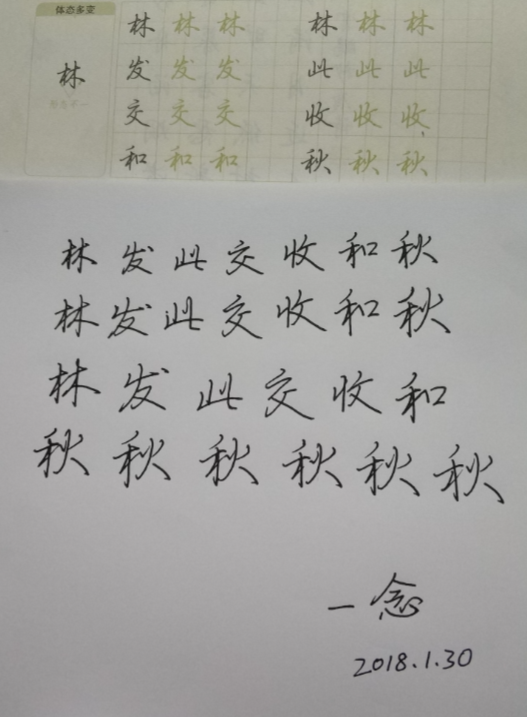 体态多变
林 林 林 林 林 林 林
发 发 发 此 此 此
交 交 交 收 收 收
和 和 和 秋 秋 秋
林 发 此 交 收 和 秋
林 发 此 交 收 和 秋
林 发 此 交 收 和
秋 秋 秋 秋 秋 秋
一念
2018.1.30